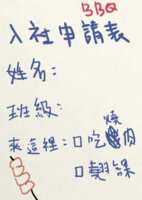 BBQ
入社申請表
姓名:
班級:
來這裡:□吃燒肉
□翹課